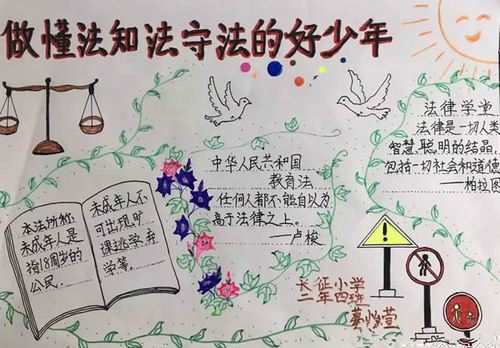 做懂法知法守法的好少年
本法所称
未成年人是
指18周岁的
公民。
未成年人不
可出现旷
课逃学弃
学等。
中华人民共和国
教育法
任何人都不能自以为
高于法律之上。
——卢梭
法律学堂
法律是一切人类
智慧聪明的结晶,
包括一切社会和道德
——柏拉图
长征小学
二年四班